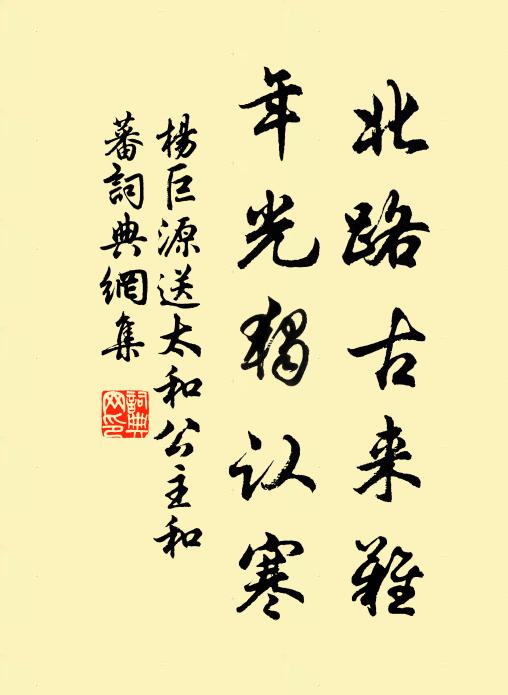 北路古来難
年光獨认寒
楊巨源送太和公主和
蕃詞典網集
詞典网印